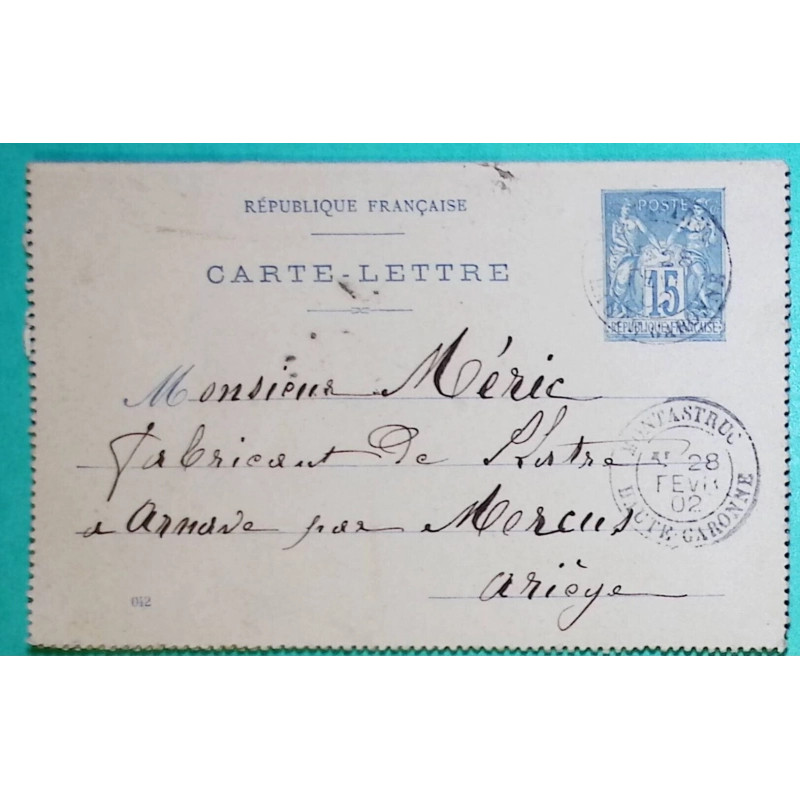 RÉPUBLIQUE FRANÇAISE
CARTE-LETTRE
POSTE
15
RÉPUBLIQUE FRANÇAISE
Monsieur Méric
fabricant de
MONTASTRUC
28
FEVR
02
HAUTE-GARONNE
a arnave par Mercus
ariège
042